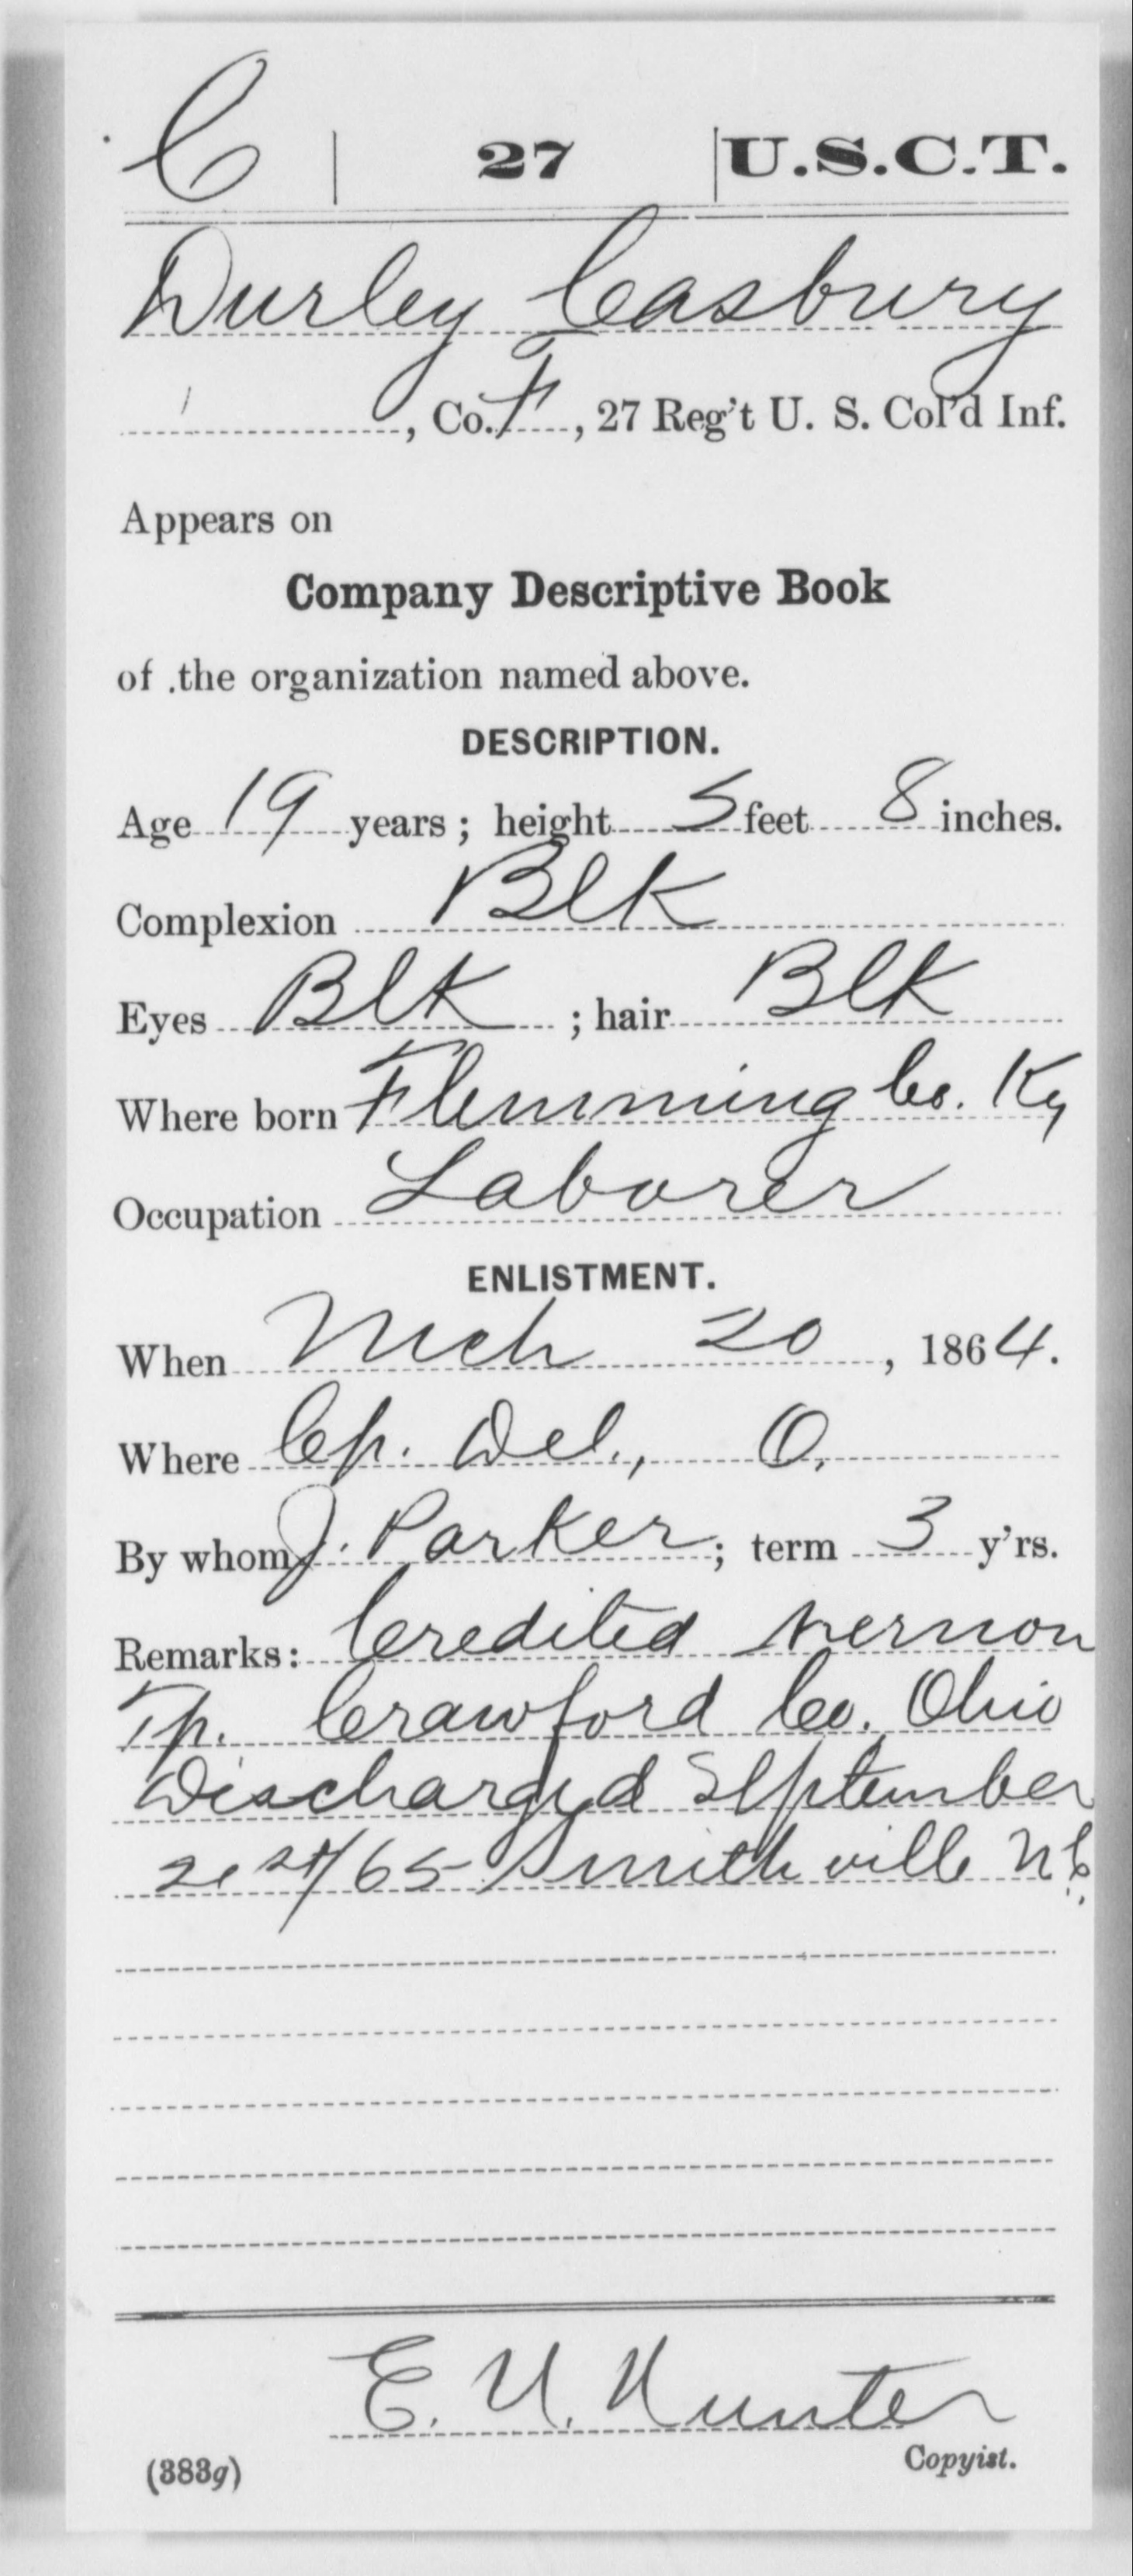 C | 27 | U.S.C.T.
Durley Casbury
, Co. F, 27 Reg't U. S. Col'd Inf.
Appears on
Company Descriptive Book
of the organization named above.
DESCRIPTION.
Age 19 years; height 5 feet 8 inches.
Complexion Blk
Eyes Blk; hair Blk
Where born Flemming Co. Ky
Occupation Laborer
ENLISTMENT.
When Mch 20, 1864.
Where Cp. Del., O.
By whom J. Parker; term 3 y'rs.
Remarks: Credited Vernon
Tp. Crawford Co. Ohio
Discharged September
21st/65 Smithville N.C.
E. U. Hunter
Copyist.
(383g)